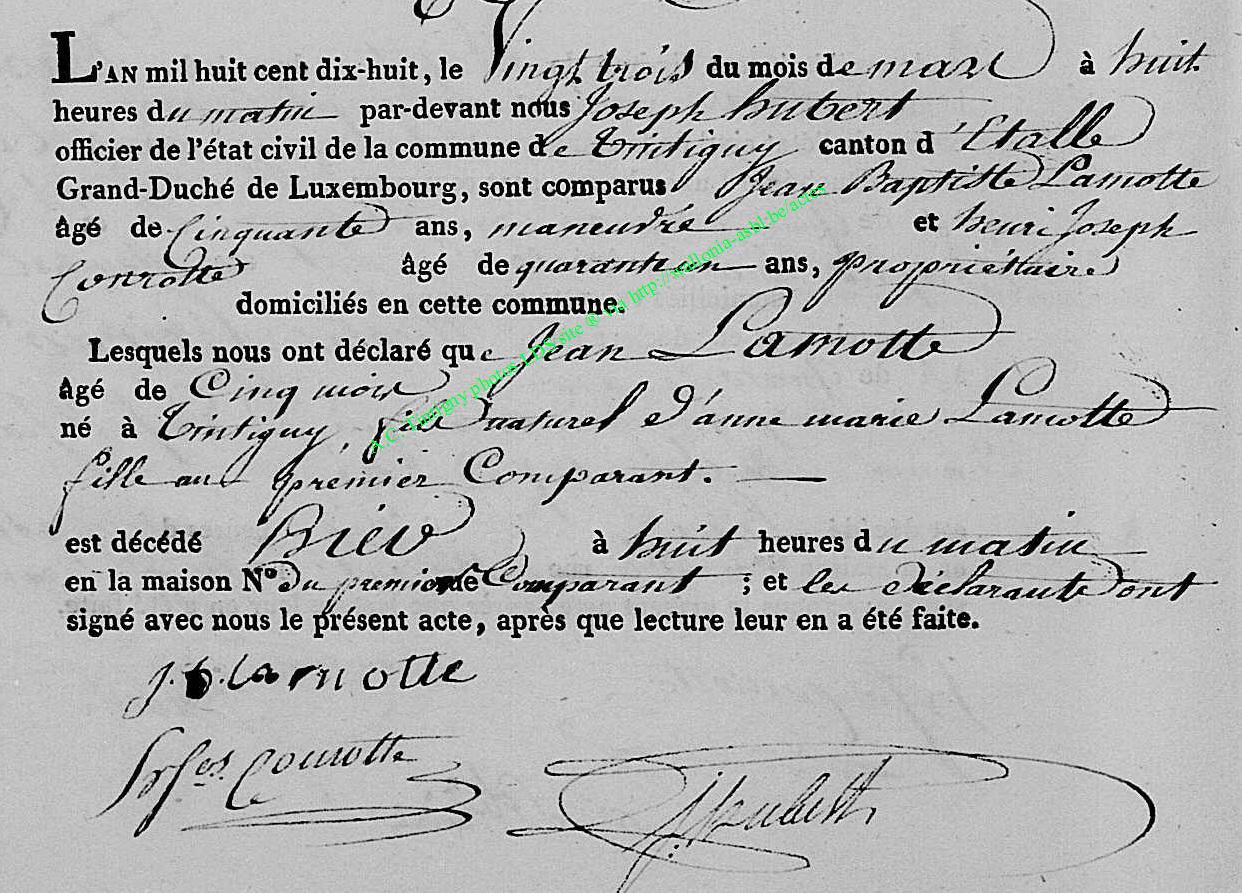 L'AN mil huit cent dix-huit, le Vingt trois du mois de mars à huit
heures du matin par-devant nous Joseph hubert
officier de l'état civil de la commune de Tintigny canton d'Etalle
Grand-Duché de Luxembourg, sont comparus Jean Baptiste Lamotte
âgé de Cinquante ans, maneuvre et henri Joseph
Conrotte âgé de quarante un ans, propriétaire
domiciliés en cette commune.
Lesquels nous ont déclaré que Jean Lamotte
âgé de Cinq mois
né à Tintigny, fils naturel d'anne marie Lamotte
fille au premier Comparant.
est décédé hier à huit heures du matin
en la maison N° du premier Comparant ; et les déclarants ont
signé avec nous le présent acte, après que lecture leur en a été faite.
j. b. lamotte
Conrotte
J. hubert
A.C. Tintigny photos LDS site ® via http://wallonia-asbl-be/actes